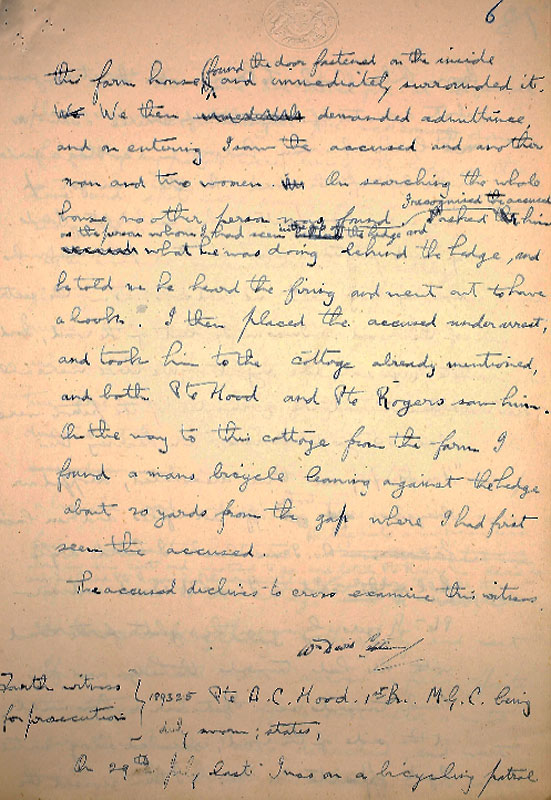 6
found the door fastened on the inside
this farm house, and immediately surrounded it.
We We then demanded admittance,
and on entering I saw the accused and another
man and two women. On searching the whole
I recognised the accused
house no other person was found. I asked him
as the person whom I had seen the hedge and
what he was doing behind the hedge, and
he told me he heard the firing and went out to have
a look. I then placed the accused under arrest,
and took him to the cottage already mentioned,
and both Pte Hood and Pte Rogers saw him.
On the way to this cottage from the farm I
found a mans bicycle leaning against the hedge
about 20 yards from the gap where I had first
seen the accused.
The accused declines to cross examine this witness.
Wm David
Fourth witness
for prosecution
189325 Pte A. C. Hood. 1st Bn. M.G.C. being
duly sworn; states,
On 29th July last I was on a bicycling patrol